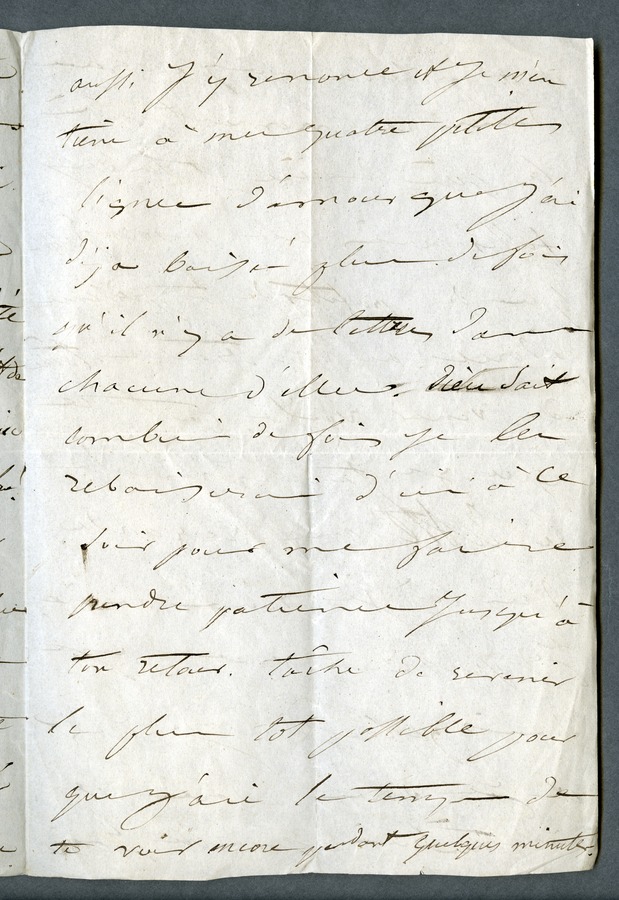 aussi j'y renonce et je m'en
tiens à mes quatre petites
lignes d'amour que j'ai
déja baisé plus de fois
qu'il n'y a de lettres dans
chacune d'elles. Dieu sait
combien de fois je les
rebaiserai d'ici à ce
soir pour me faire
prendre patience jusqu'à
ton retour. tâche de revenir
le plus tot possible pour
que j'aie le temps de
te voir encore pendant quelques minutes.
té